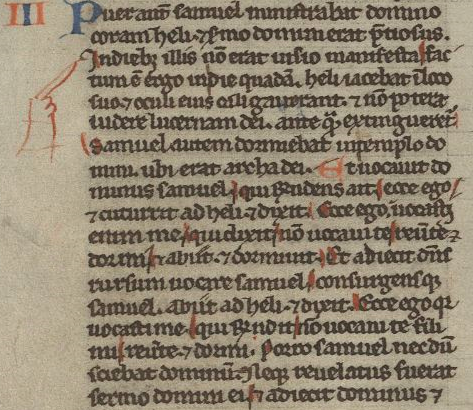 III Puer aut̄ samuel ministrabat domino
coram heli ⁊ sermo domini erat p̄tiosus.
Indieb; illis nō erat uisio manifesta fac
tum ē ergo in die quadā. heli iacebat ī loco
suo. ⁊ oculi eius caligauerant. ⁊ nō potera
uidere lucernam dei. ante q̄ extingueret̄
Samuel autem dormiebat in templo do
mini. ubi erat archa dei. Et uocauit do
minus samuel. qui rn̄dens ait. ecce ego
⁊ cucurrit ad heli ⁊ dixit. Ecce ego. uocasti
enim me. qui dixit. nō uocaui te. reuert̄e ⁊
dormi. ⁊ abiit. ⁊ dormiuit. Et adiecit dn̄s
rursum uocare samuel. consurgensq;
samuel. abiit ad heli. ⁊ dixit. Ecce ego qi
uocasti me. qui rn̄dit. nō uocaui te fili
mi. reūt̄e. ⁊ dormi. Porro samuel necdū
sciebat dominū. Neq; reuelatus fuerat
sermo domini ei. ⁊ adiecit dominus ⁊